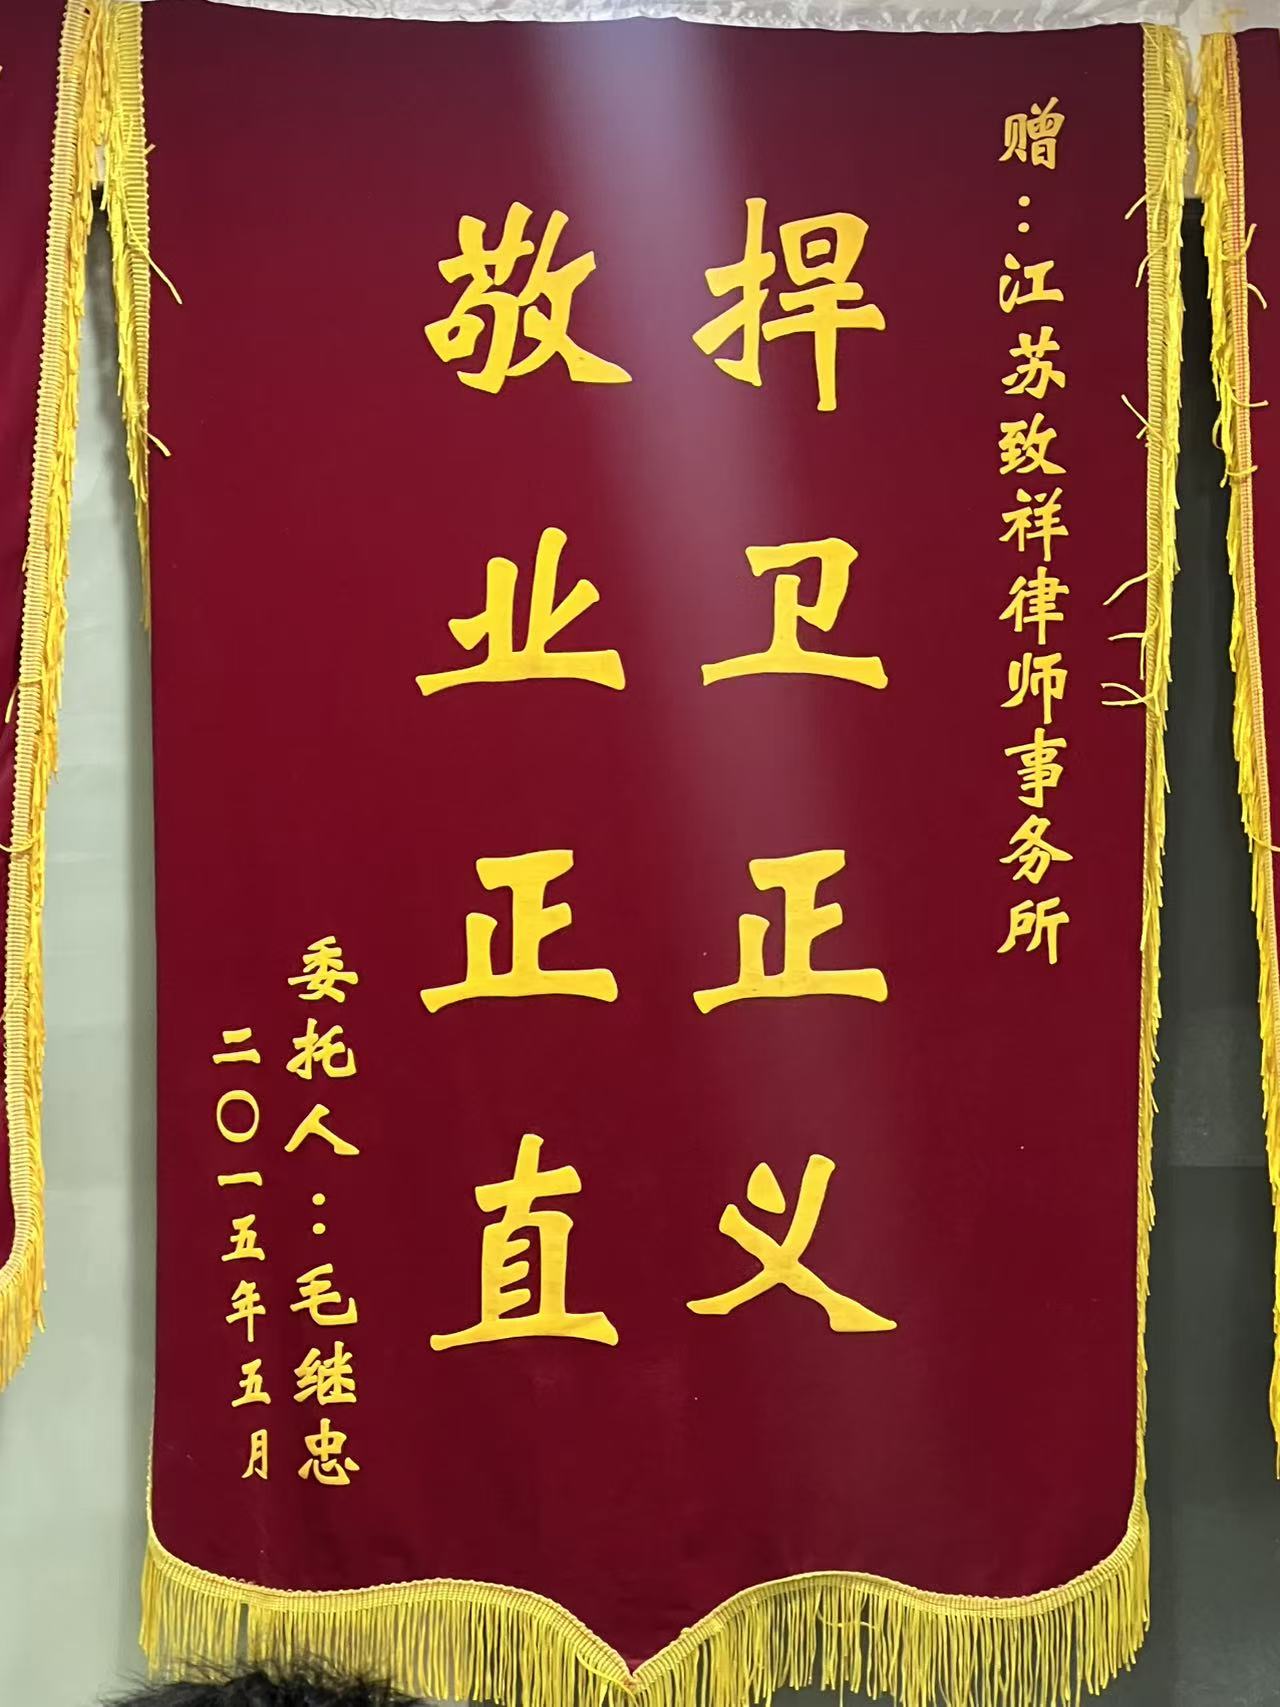 赠：江苏致祥律师事务所
捍卫正义
敬业正直
委托人：毛继忠
二〇一五年五月